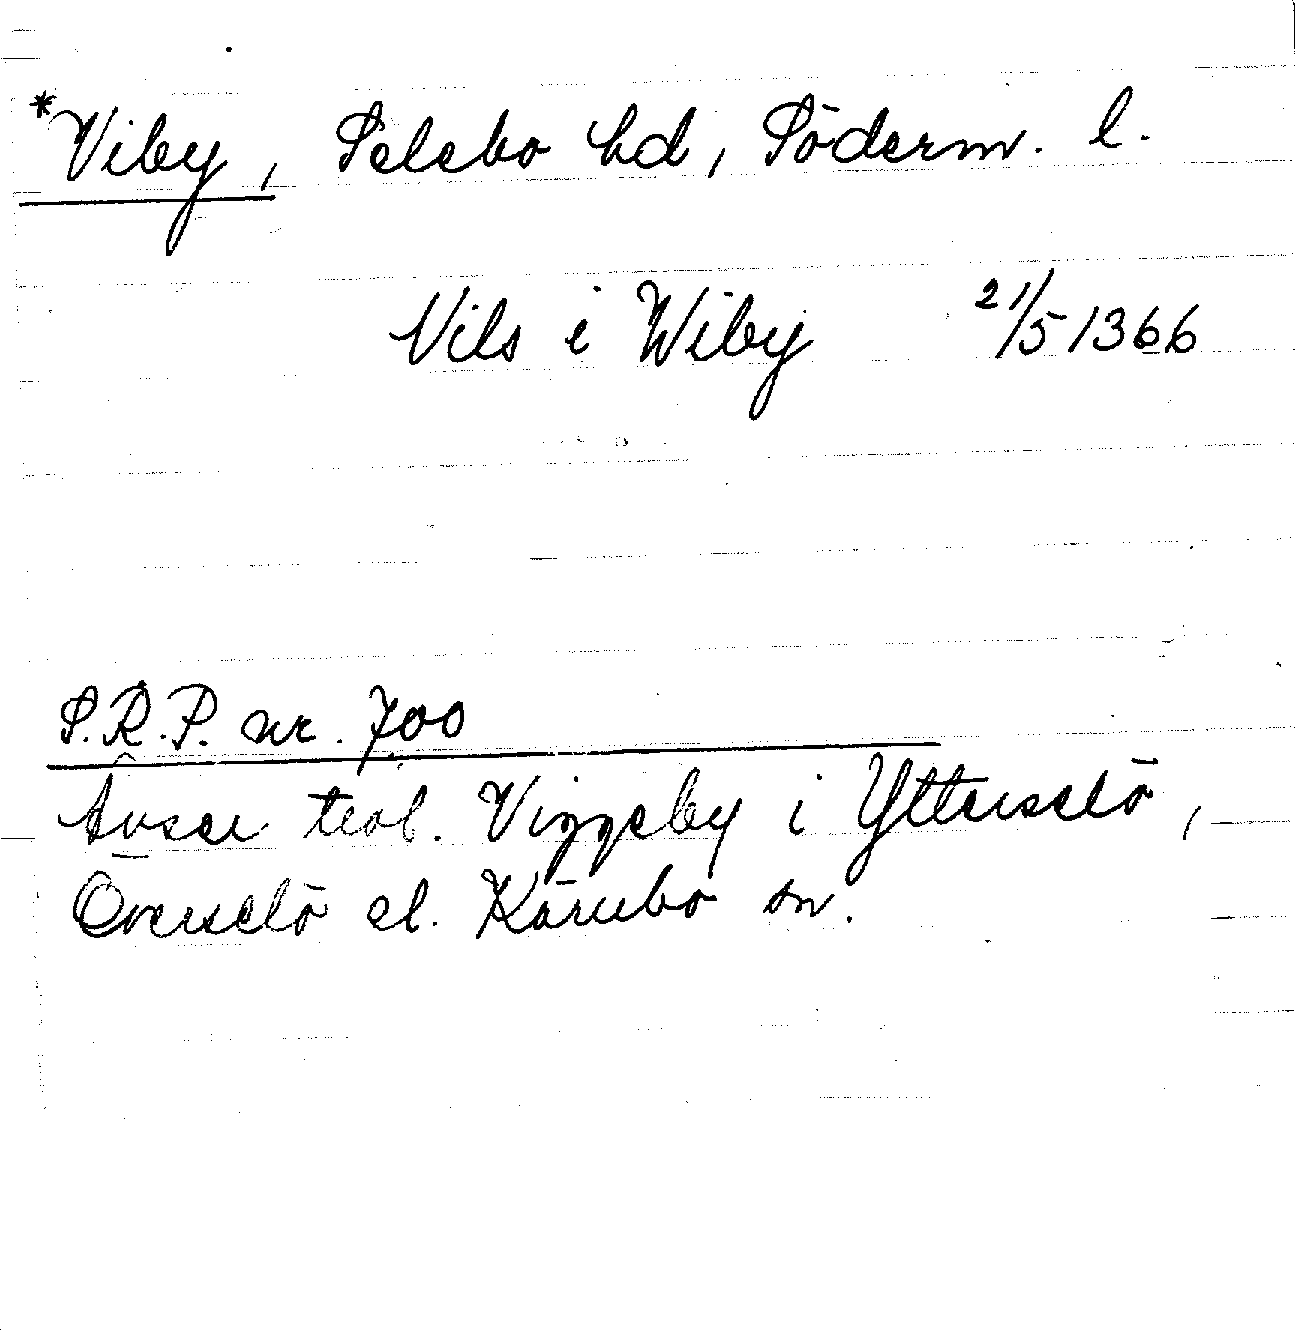 *Viby, Selebo hd, Söderm. l.
Nils i Wiby 21/5 1366
S.R.P. nr. 700
Avser trol. Viggeby i Ytterselö,
Överselö el. Kärnbo sn.